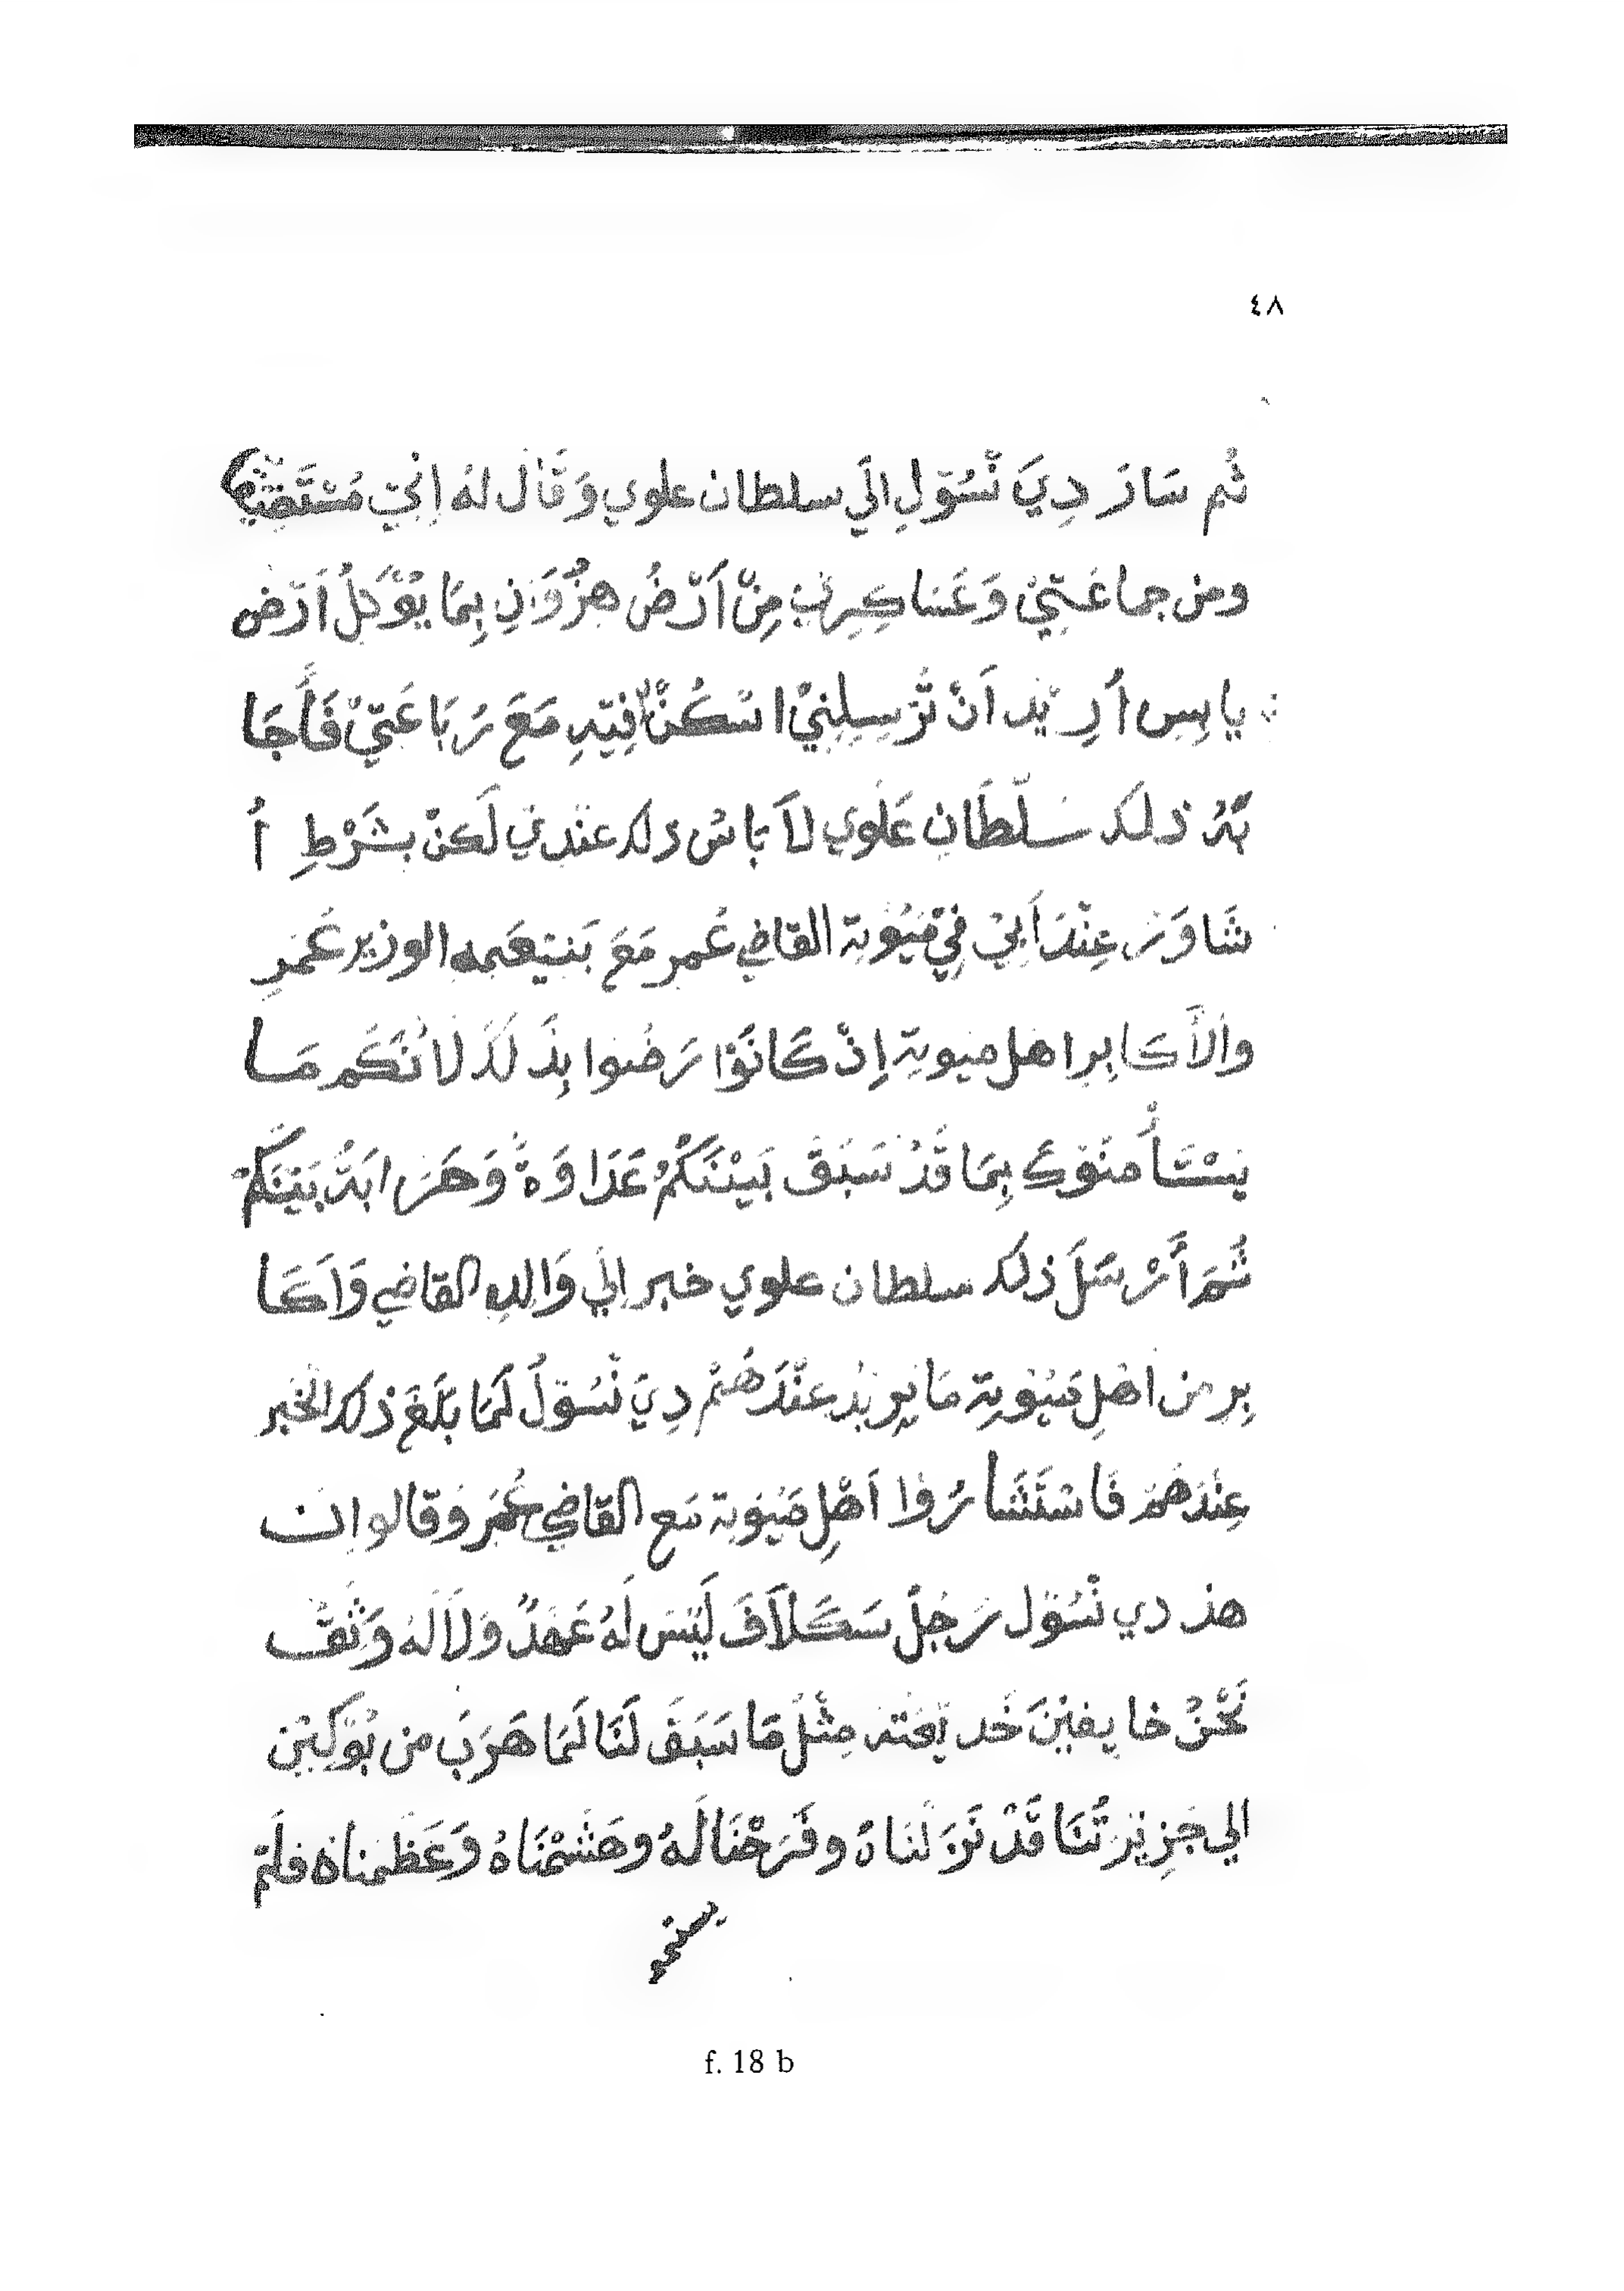 ٤٨
ثُم سَارَ دِيَ نْسُوْلِ الَي سلطان علوي وَقَالَ لهُ اِنِّيْ
ومن جماعَتِيْ وَعَسَاكِرِيْ مِنْ اَرْضُ هِزُوَانِ بِمَا يُوْكَلُ اَرْض
يابِس اُرِيْد اَنْ تُرْسِلِنِيْ اسْكُنْ فِيْهِ مَعَ رُبَاعَتِيْ فَأَجَا
بَهُ ذلك سَلْطَانِ عَلَوي لاَ بَاسُ دلك عنْدِيْ لَكنْ بشَرْطِ اُ
شَاوَرَ عِنْدَ اَبِيْ فِيْ مَيُوْتِة القاضي عُمر مَعَ بَنيعَمه الوزير عُمَرِ
والاَكَابِر اهل ميوتِة اِنْ كَانُوْا رَضُوا بِذَلَكَ لانُكُم مَا
يَسْتَأْمنُوْكَ بِمَا قَدْ سَبَقَ بَيْنَكُمْ عَدَاوَةْ وَحَرَابَةْ بَيْنَكُمْ
ثُمَ أَرْسَلَ ذلك سلطان علوي خبر الي وَالِدِهِ القاضي وَاَكَا
بِر من اهْلِ مَيُوْتِة مَا يرِيْدُ عنْدَهُمْ دِيَ نْسُوْلُ لَمَا بَلَغَ ذلك الخبر
عِنْدَهُمْ فَاسْتَشَأرُوا اَهْلِ مَيُوْتَة مَع القاضي عُمَر وَقالوا ان
هذ دي نْسُوْل رَجُلْ سَكَلاَفَ لَيْسَ لَهُ عَهْدٌ وَلاَلَهُ وَثُقْ
نَحْنُ خايفيْنَ خَديعَته مِثْلُ مَا سَبَقَ لَنَا لَمَا هَرَبَ من بُوْكِيْن
الي جَزِيْرَتُنَا قَدْ نَزَلنَاهُ وفَرَحْنَا لَهُ وحَشَمْنَاهُ وَعَظمناهُ فلَمْ
f. 18 b